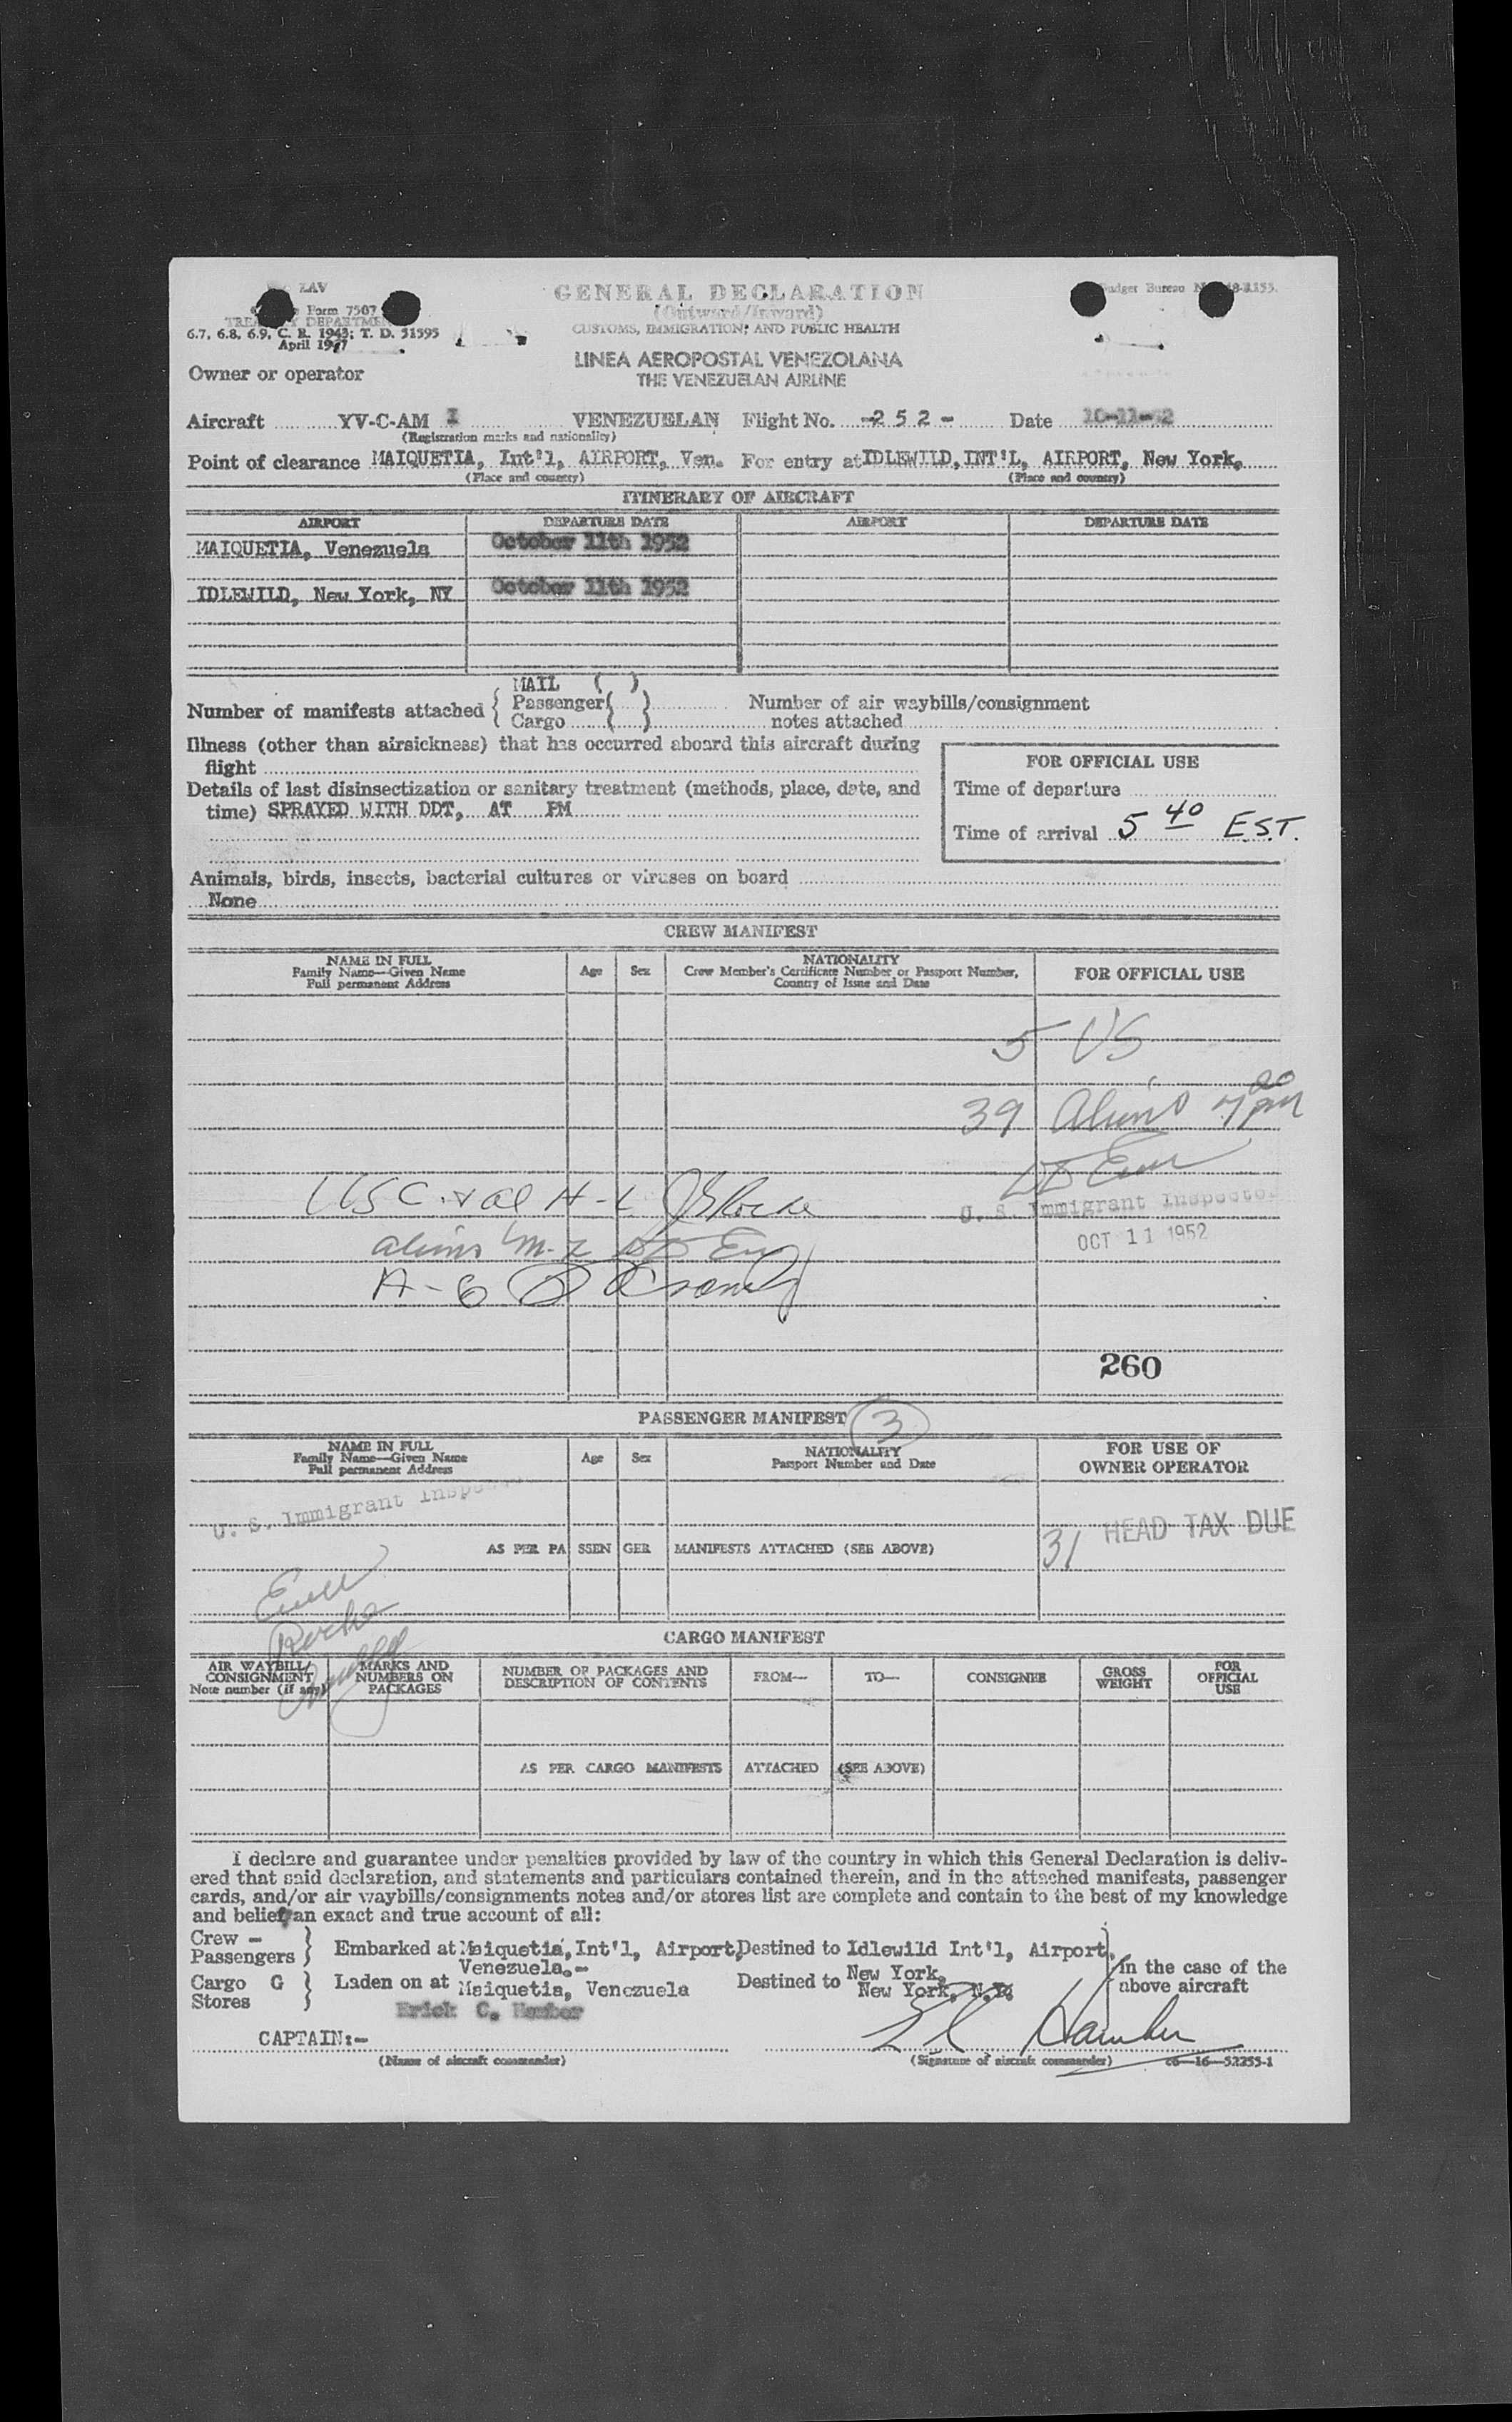 LAV
Form 7507
TREASURY DEPARTMENT
6.7, 6.8, 6.9, C. R. 1943; T. D. 51595
April 1947
GENERAL DECLARATION
(Outward/Inward)
CUSTOMS, IMMIGRATION, AND PUBLIC HEALTH
Budget Bureau
LINEA AEROPOSTAL VENEZOLANA
THE VENEZUELAN AIRLINE
Owner or operator
Aircraft YV-C-AM I VENEZUELAN Flight No. -252- Date 10-11-52
(Registration marks and nationality)
Point of clearance MAIQUETIA, Int'l, AIRPORT, Ven. For entry at IDLEWILD, INT'L, AIRPORT, New York,
(Place and country) (Place and country)
ITINERARY OF AIRCRAFT
AIRPORT DEPARTURE DATE AIRPORT DEPARTURE DATE
MAIQUETIA, Venezuela October 11th 1952
IDLEWILD, New York, NY October 11th 1952
MAIL ( )
Number of manifests attached { Passenger ( ) Number of air waybills/consignment
Cargo ( ) notes attached
Illness (other than airsickness) that has occurred aboard this aircraft during
flight
FOR OFFICIAL USE
Details of last disinsectization or sanitary treatment (methods, place, date, and
time) SPRAYED WITH DDT, AT PM
Time of departure
Time of arrival 5 40 E.S.T.
Animals, birds, insects, bacterial cultures or viruses on board
None
CREW MANIFEST
NAME IN FULL
Family Name—Given Name
Full permanent Address
Age Sex
NATIONALITY
Crew Member's Certificate Number or Passport Number,
Country of Issue and Date
FOR OFFICIAL USE
5 US
39 Aliens 7 20 PM
U. S. Immigrant Inspector
OCT 11 1952
A-6
260
PASSENGER MANIFEST 3
NAME IN FULL
Family Name—Given Name
Full permanent Address
Age Sex
NATIONALITY
Passport Number and Date
FOR USE OF
OWNER OPERATOR
U. S. Immigrant Inspector
31 HEAD TAX DUE
AS PER PASSENGER MANIFESTS ATTACHED (SEE ABOVE)
Roche
CARGO MANIFEST
AIR WAYBILL/
CONSIGNMENT
Note number (if any)
MARKS AND
NUMBERS ON
PACKAGES
NUMBER OF PACKAGES AND
DESCRIPTION OF CONTENTS
FROM— TO— CONSIGNEE
GROSS
WEIGHT
FOR
OFFICIAL
USE
AS PER CARGO MANIFESTS ATTACHED (SEE ABOVE)
I declare and guarantee under penalties provided by law of the country in which this General Declaration is deliv-
ered that said declaration, and statements and particulars contained therein, and in the attached manifests, passenger
cards, and/or air waybills/consignments notes and/or stores list are complete and contain to the best of my knowledge
and belief, an exact and true account of all:
Crew -
Passengers } Embarked at Maiquetia, Int'l, Airport, Destined to Idlewild Int'l, Airport,
Venezuela.- New York,
Cargo G
Stores } Laden on at Maiquetia, Venezuela Destined to New York, N.Y.
In the case of the
above aircraft
Erick C. Hamber
CAPTAIN:- E C Hamber
(Name of aircraft commander) (Signature of aircraft commander) c6—16—52255-1